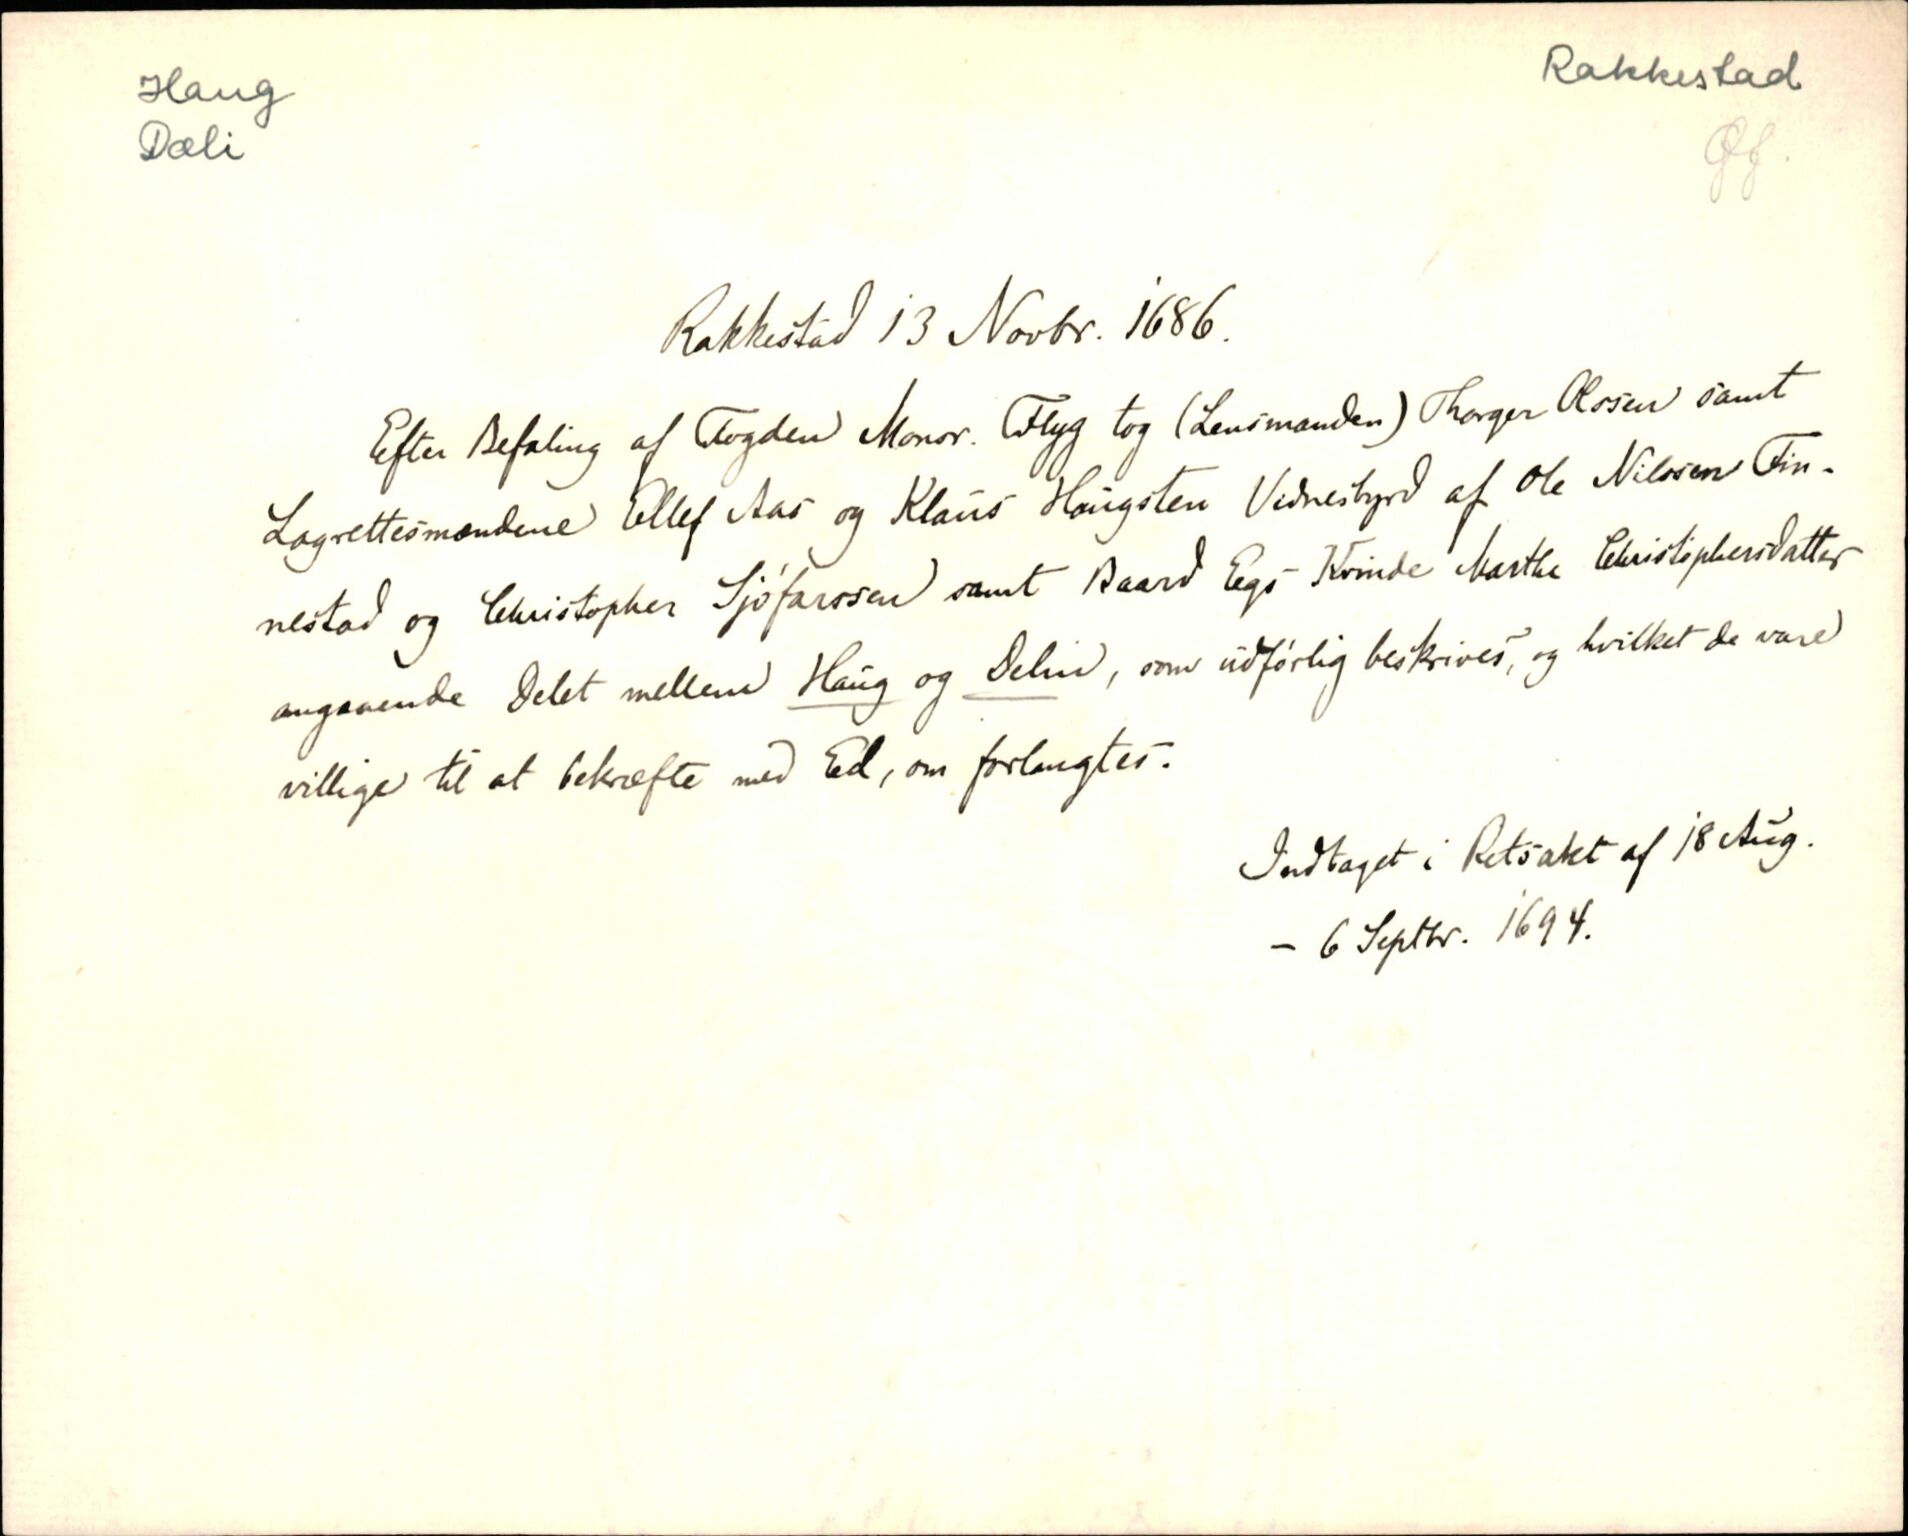 Haug
Dæli
Rakkestad
Øf.
Rakkestad 13 Novbr. 1686.
Efter Befaling af Fogden Monsr. Flyg tog (Lensmanden) Thorger Olssen samt
Lagrettesmændene Ellef Aas og Klaus Haugsten Vidnesbyrd af Ole Nilssen Fin-
nestad og Christopher Sjøfarssen samt Baard Egs Kvinde Marthe Christophersdatter
angaaende Delet mellem Haug og Delin, som udførlig beskrives, og hvilket de vare
villige til at bekræfte med Ed, om forlangtes.
Indtaget i Retsakt af 18 Aug.
- 6 Septbr. 1694.